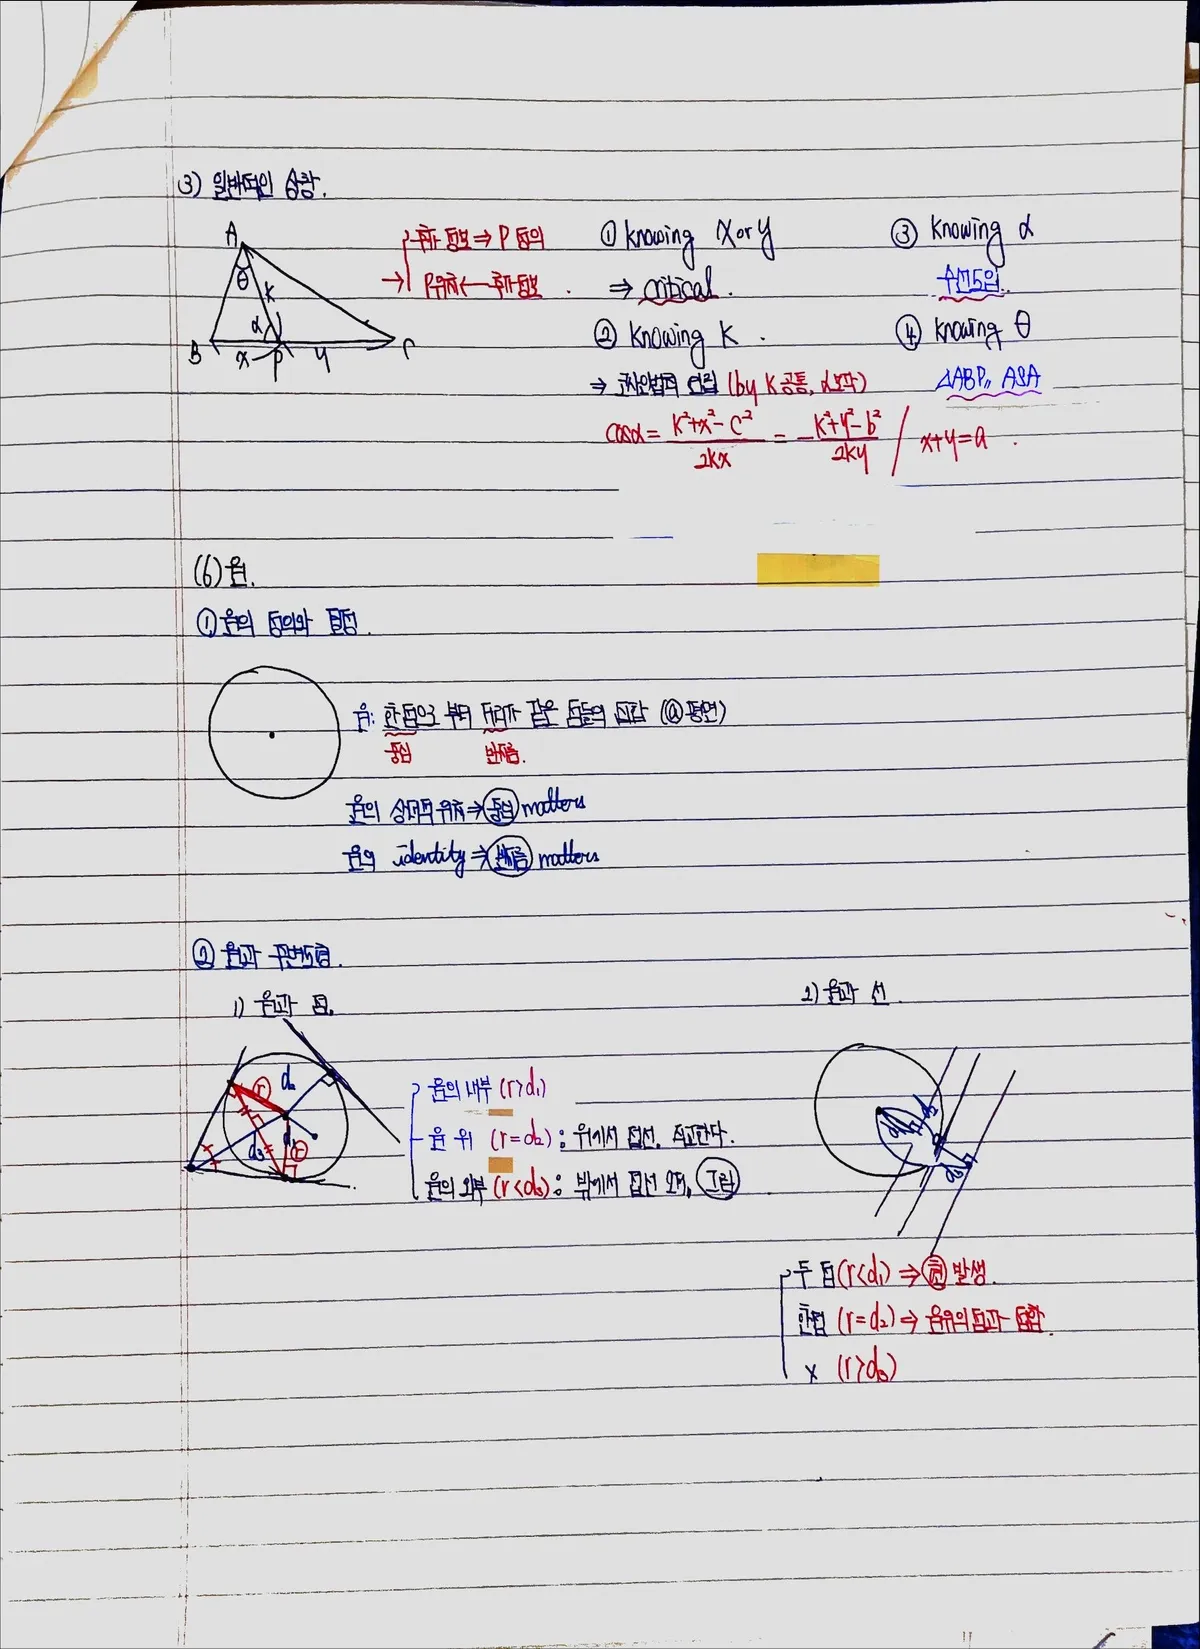 3) 일반적인 상황.
A
θ
K
α
B x P y C
추가 정보 ⇒ P 정의
→ P위치 ← 추가정보.
① Knowing x or y
⇒ critical.
② Knowing K.
⇒ 코사인법칙 연립 (by K공통, α보각)
cosα = K²+x²-c² / 2Kx = - K²+y²-b² / 2Ky / x+y=a.
③ Knowing α
수선도입.
④ Knowing θ
△ABP,, ASA
(6) 원.
① 원의 정의와 결정.
원: 한 점으로 부터 거리가 같은 점들의 집합 (@평면)
중심 반지름.
원의 상대적 위치 ⇒ 중심 matters
원의 identity ⇒ 반지름 matters
② 원과 주변도형.
1) 원과 점.
r d₂
d₁
d₃ r
원의 내부 (r>d₁)
원 위 (r=d₂) : 위에서 접선. 직교한다.
원의 외부 (r<d₃) : 밖에서 접선 2개, 그림
2) 원과 선.
d₁ d₂
d₃
두 점 (r<d₁) ⇒ 현 발생.
한점 (r=d₂) ⇒ 원위의점과 접합.
x (r>d₃)